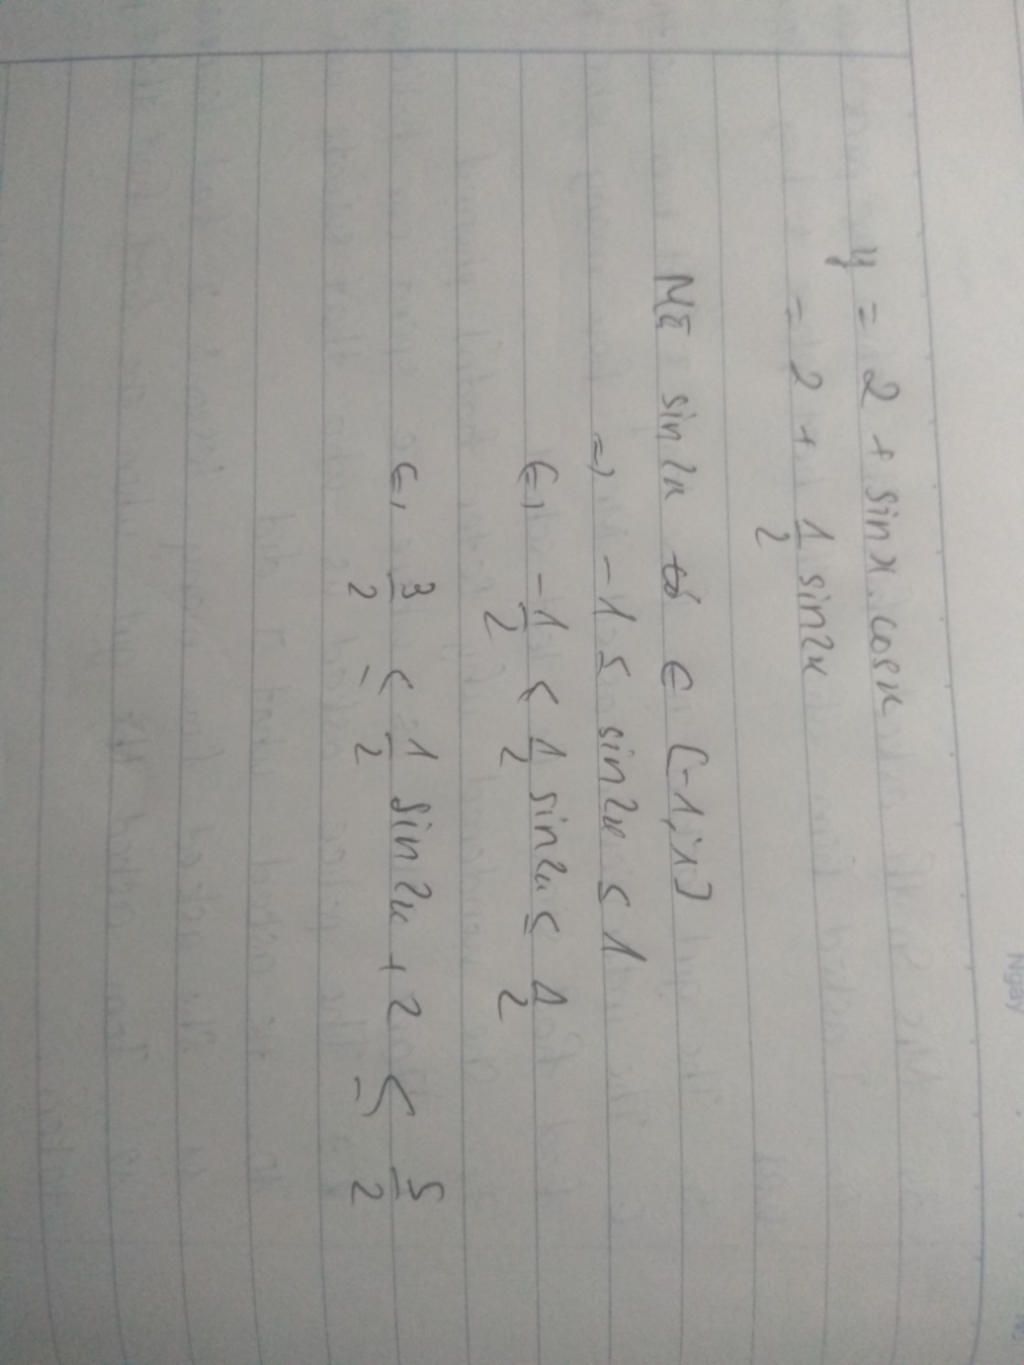 Ngày
y = 2 + sinx.cosx
= 2 + 1/2 sin2x
Mà sin2x ∈ [-1;1]
=) -1 ≤ sin2x ≤ 1
(=) -1/2 < 1/2 sin2x ≤ 1/2
(=) 3/2 ≤ 1/2 sin2x + 2 ≤ 5/2